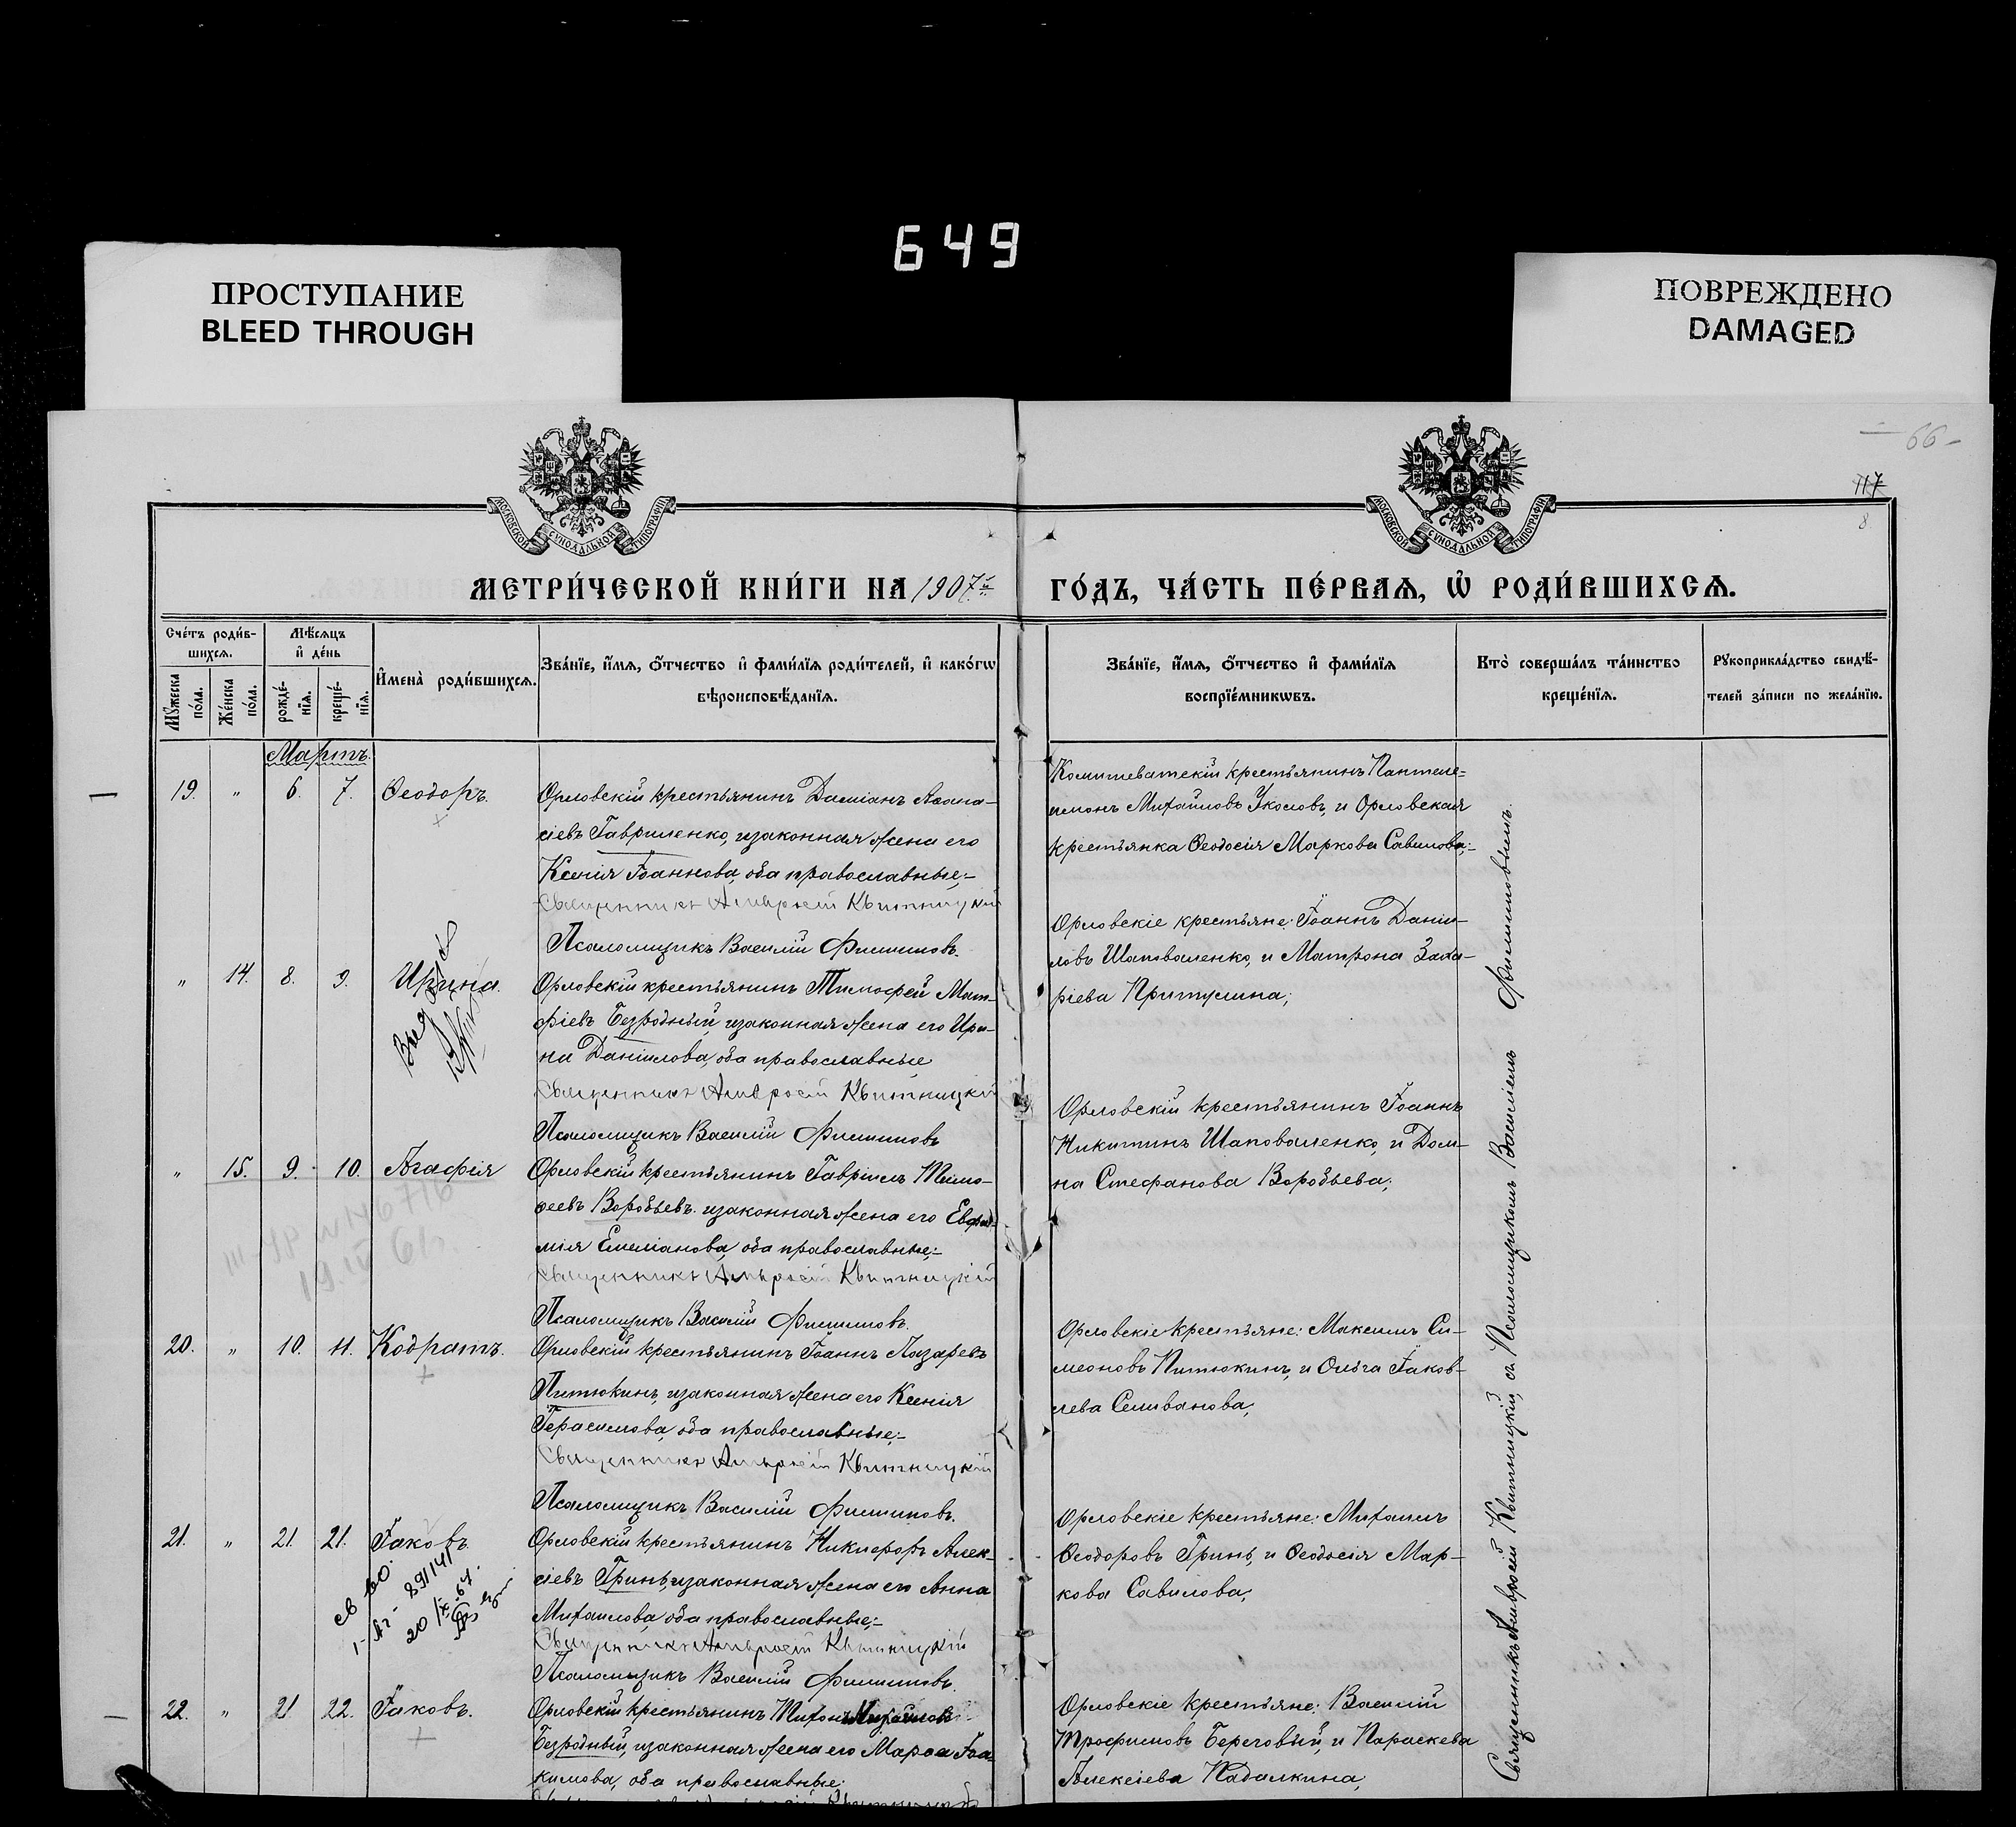 649
ПРОСТУПАНИЕ
BLEED THROUGH
ПОВРЕЖДЕНО
DAMAGED
66
117
8
МОСКОВСКОЙ СУНОДАЛЬНОЙ ТИПОГРАФІИ
МОСКОВСКОЙ СУНОДАЛЬНОЙ ТИПОГРАФІИ
МЕТРИ́ЧЕСКОЙ КНИ́ГИ НА 1907й ГО́ДЪ, ЧА́СТЬ ПЕ́РВАѦ, Ѡ҆ РОДИ́ВШИХСѦ.
Сче́тъ роди́в-
шихсѧ.
Мѣ́сѧцъ
и҆ де́нь
Мꙋ́жеска по́ла.
Же́нска по́ла.
рожде́-
нїѧ.
креще́-
нїѧ.
И҆мена̀ роди́вшихсѧ.
Зва́нїе, и҆́мѧ, ѻ҆́тчество и҆ фами́лїѧ роди́телей, и҆ како́гѡ
вѣроисповѣ́данїѧ.
Зва́нїе, и҆́мѧ, ѻ҆́тчество и҆ фами́лїѧ
воспрїе́мникѡвъ.
Кто̀ соверша́лъ та́инство
креще́нїѧ.
Рꙋкоприкла́дство свидѣ́-
телей за́писи по жела́нїю.
Мартъ.
19. " 6. 7. Ѳеодоръ.
Орловскій крестьянинъ Даміанъ Аѳана-
сіевъ Гавриленко, и законная жена его
Ксенія Іоаннова, оба православные;-
Священникъ Амвросій Квитницкій
Псаломщикъ Василій Филипповъ.
Комишеватскій крестьянинъ Пантеле-
имонъ Михайловъ Уколовъ, и Орловская
крестьянка Ѳеодосія Маркова Савилова;-
" 14. 8. 9. Ирина.
Орловскій крестьянинъ Тимофей Мат-
фіевъ Безродный, и законная жена его Ири-
на Даніилова, оба православные
Священникъ Амвросій Квитницкій
Псаломщикъ Василій Филипповъ
Орловскіе крестьяне: Іоаннъ Дані-
ловъ Шаповаленко, и Матрона Заха-
ріева Притулина;
" 15. 9. 10. Агафія
Орловскій крестьянинъ Гавріилъ Тимо-
ѳеевъ Воробьевъ. и законная жена его Евфи-
мія Емеліанова, оба православные;-
Священникъ Амвросій Квитницкій
Псаломщикъ Василій Филипповъ.
Орловскій крестьянинъ Іоаннъ
Никитинъ Шаповаленко, и Дом-
на Стефанова Воробьева;
19.IV 61
20. " 10. 11. Кодратъ.
Орловскій крестьянинъ Іоаннъ Лазаревъ
Питюкинъ, и законная жена его Ксенія
Герасимова, оба православные;-
Священникъ Амвросій Квитницкій
Псаломщикъ Василій Филипповъ.
Орловскіе крестьяне: Максимъ Си-
меоновъ Питюкинъ, и Ольга Іаков-
лева Селиванова;
21. " 21. 21. Іаковъ.
св-во.
891141
20/IX-64.
Орловскій крестьянинъ Никифоръ Алек-
сіевъ Гринь, и законная жена его Анна
Михаилова, оба православные;-
Священникъ Амвросій Квитницкій
Псаломщикъ Василій Филипповъ.
Орловскіе крестьяне: Михаилъ
Ѳеодоровъ Гринь, и Ѳеодосія Мар-
кова Савилова;
22. " 21 22. Іаковъ.
Орловскій крестьянинъ Тихонъ Михайловъ
Безродный, и законная жена его Марѳа Іоа-
кимова, оба православные;
Орловскіе крестьяне: Василій
Трофимовъ Береговый, и Параскева
Алексіева Падалкина;
Священникъ Амвросій Квитницкій, съ Псаломщикомъ Василіемъ Филипповымъ.